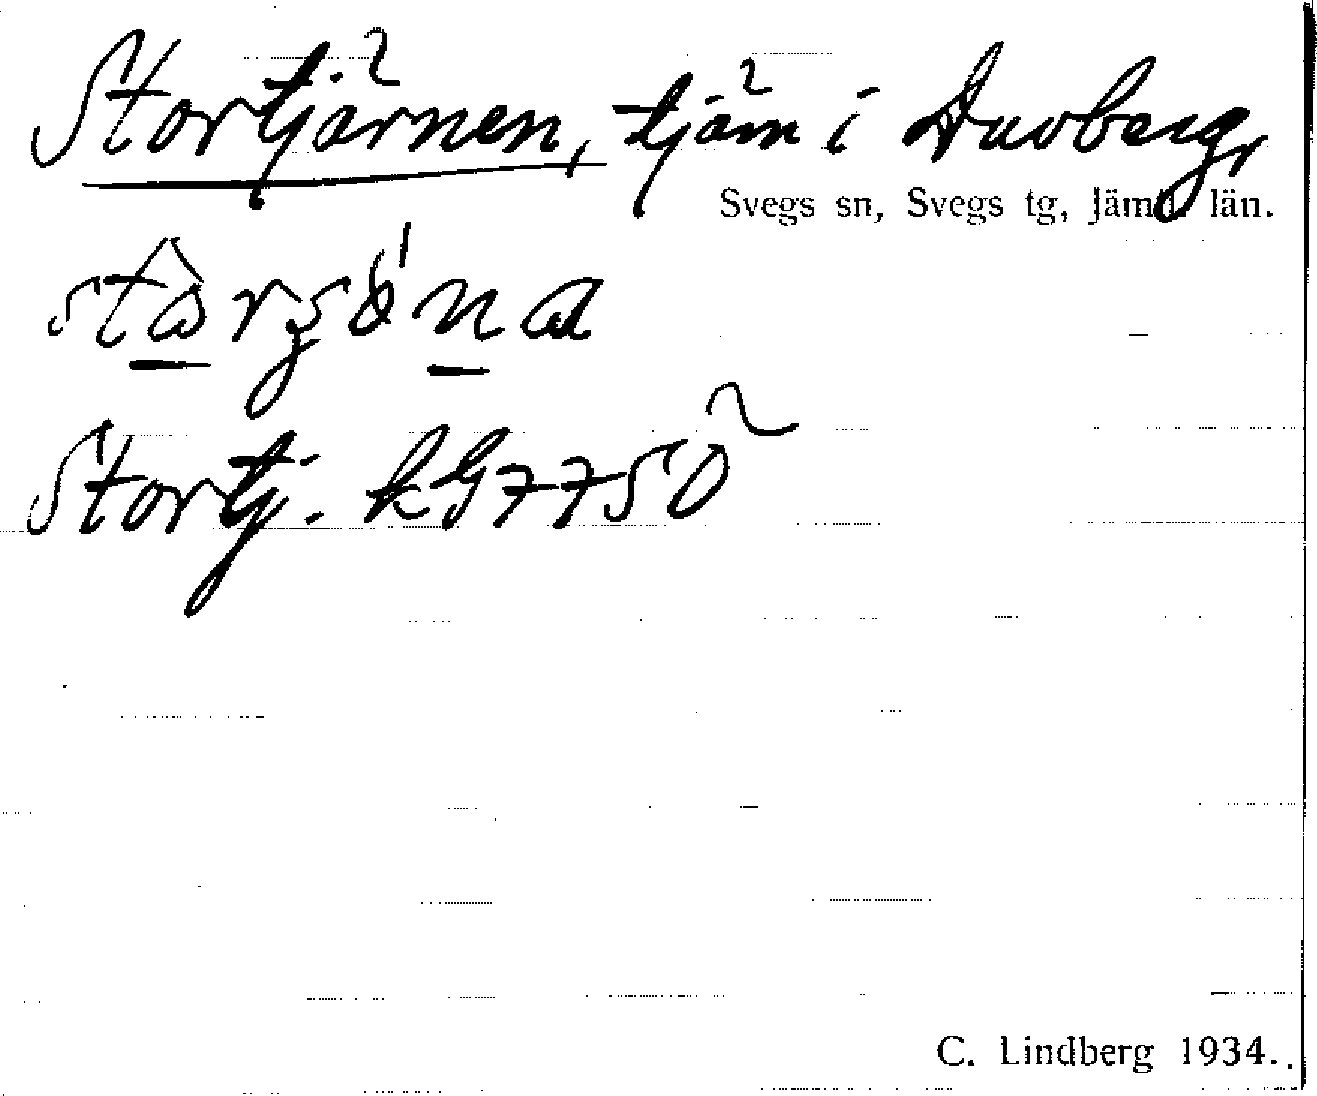 Stortjärnen, tjärn i Duvberg,
Svegs sn, Svegs tg, Jämtl. län.
Stortj. kG7750
C. Lindberg 1934.